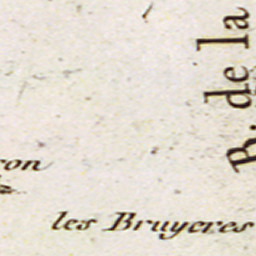 B. de la
ron
les Bruyeres